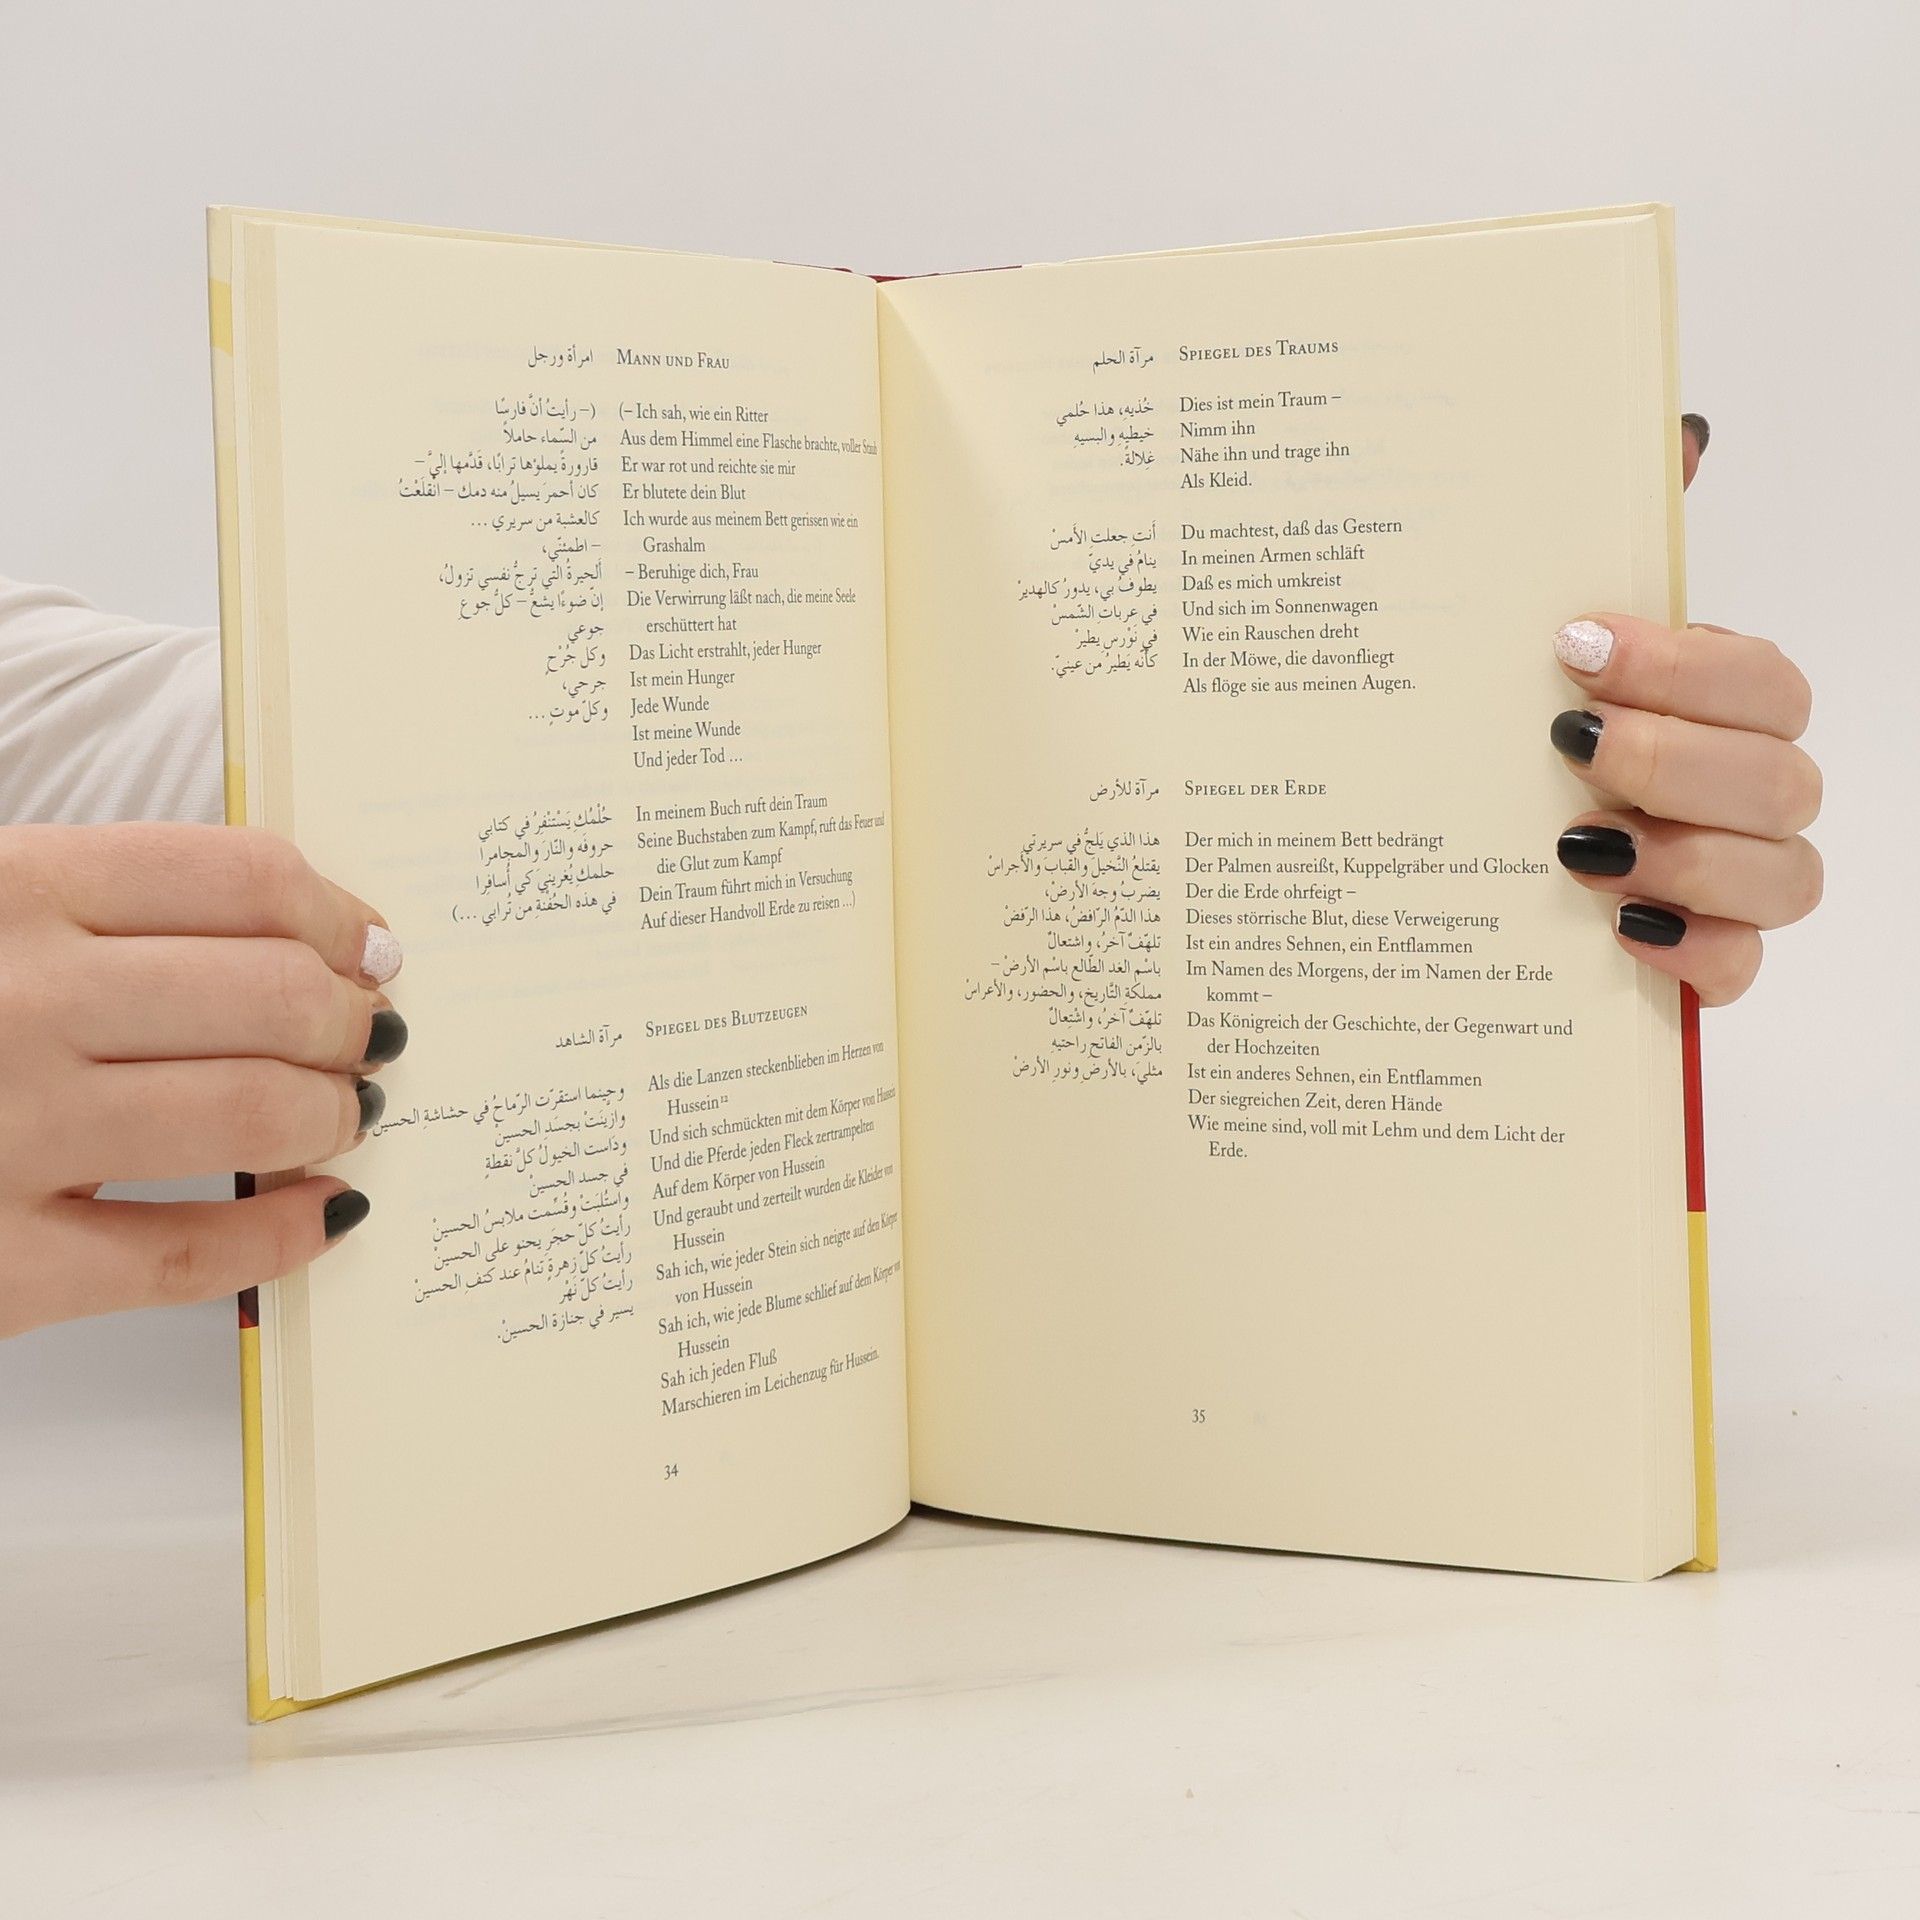 امرأة ورجل
(– رأيتُ أنَّ فارسًا
من السّماء حاملاً
قارورةً يملؤها ترابًا، قَدَّمها إليَّ –
كان أحمرَ يسيلُ منه دمك – انْقلَعْتُ
كالعشبة من سريري ...
– اطمئنّي،
اَلحيرةُ التي ترجُّ نفسي تزولُ،
إنّ ضوءًا يشعُّ – كلُّ جوعٍ
جوعي
وكل جُرْحٍ
جرحي،
وكلّ موتٍ ...
حُلْمُكِ يَسْتَنْفِرُ في كتابي
حروفَه والنّارَ والمجامرا
حلمكِ يُغريني كي أُسافِرا
في هذه الحُفْنةِ من تُرابي ...)
MANN UND FRAU
(– Ich sah, wie ein Ritter
Aus dem Himmel eine Flasche brachte, voller Staub
Er war rot und reichte sie mir
Er blutete dein Blut
Ich wurde aus meinem Bett gerissen wie ein
Grashalm
– Beruhige dich, Frau
Die Verwirrung läßt nach, die meine Seele
erschüttert hat
Das Licht erstrahlt, jeder Hunger
Ist mein Hunger
Jede Wunde
Ist meine Wunde
Und jeder Tod ...
In meinem Buch ruft dein Traum
Seine Buchstaben zum Kampf, ruft das Feuer und
die Glut zum Kampf
Dein Traum führt mich in Versuchung
Auf dieser Handvoll Erde zu reisen ...)
مرآة الشاهد
وحينما استقرّت الرّماحُ في حشاشةِ الحسينْ
وازَّيَنَتْ بجسَدِ الحسينْ
ودَاست الخيولُ كلَّ نقطةٍ
في جسد الحسينْ
واستُلبَتْ وقُسِّمت ملابسُ الحسينْ
رأيتُ كلّ حجَرٍ يحنو على الحسينْ
رأيتُ كلّ زهرةٍ تنامُ عند كتفِ الحسينْ
رأيتُ كلّ نَهْرْ
يسير في جنازة الحسينْ.
SPIEGEL DES BLUTZEUGEN
Als die Lanzen steckenblieben im Herzen von
Hussein¹²
Und sich schmückten mit dem Körper von Hussein
Und die Pferde jeden Fleck zertrampelten
Auf dem Körper von Hussein
Und geraubt und zerteilt wurden die Kleider von
Hussein
Sah ich, wie jeder Stein sich neigte auf den Körper
von Hussein
Sah ich, wie jede Blume schlief auf dem Körper von
Hussein
Sah ich jeden Fluß
Marschieren im Leichenzug für Hussein.
34
مرآة الحلم
خُذيهِ، هذا حُلمي
خيطيهِ والبسيهِ
غِلالةً.
أَنتِ جعلتِ الأَمسْ
ينامُ في يديّ
يطوفُ بي، يدورُ كالهديرْ
في عرباتِ الشّمسْ
في نَوْرسٍ يطيرْ
كأنّه يَطيرُ من عينيّ.
SPIEGEL DES TRAUMS
Dies ist mein Traum –
Nimm ihn
Nähe ihn und trage ihn
Als Kleid.
Du machtest, daß das Gestern
In meinen Armen schläft
Daß es mich umkreist
Und sich im Sonnenwagen
Wie ein Rauschen dreht
In der Möwe, die davonfliegt
Als flöge sie aus meinen Augen.
مرآة للأرض
هذا الذي يَلجُّ في سريرتي
يقتلعُ النّخيلَ والقبابَ والأجراسْ
يضربُ وجهَ الأرضْ،
هذا الدّمُ الرّافضُ، هذا الرّفضْ
تلهّفٌ آخرُ، واشتعالٌ
باسْمِ الغَد الطّالع باسْمِ الأرضْ –
مملكةِ التّاريخ، والحضور، والأعراسْ
تلهّفٌ آخرُ، واشْتِعالٌ
بالزّمن الفاتحِ راحتيهِ
مثليَ، بالأرضِ ونورِ الأرضْ
SPIEGEL DER ERDE
Der mich in meinem Bett bedrängt
Der Palmen ausreißt, Kuppelgräber und Glocken
Der die Erde ohrfeigt –
Dieses störrische Blut, diese Verweigerung
Ist ein andres Sehnen, ein Entflammen
Im Namen des Morgens, der im Namen der Erde
kommt –
Das Königreich der Geschichte, der Gegenwart und
der Hochzeiten
Ist ein anderes Sehnen, ein Entflammen
Der siegreichen Zeit, deren Hände
Wie meine sind, voll mit Lehm und dem Licht der
Erde.
35